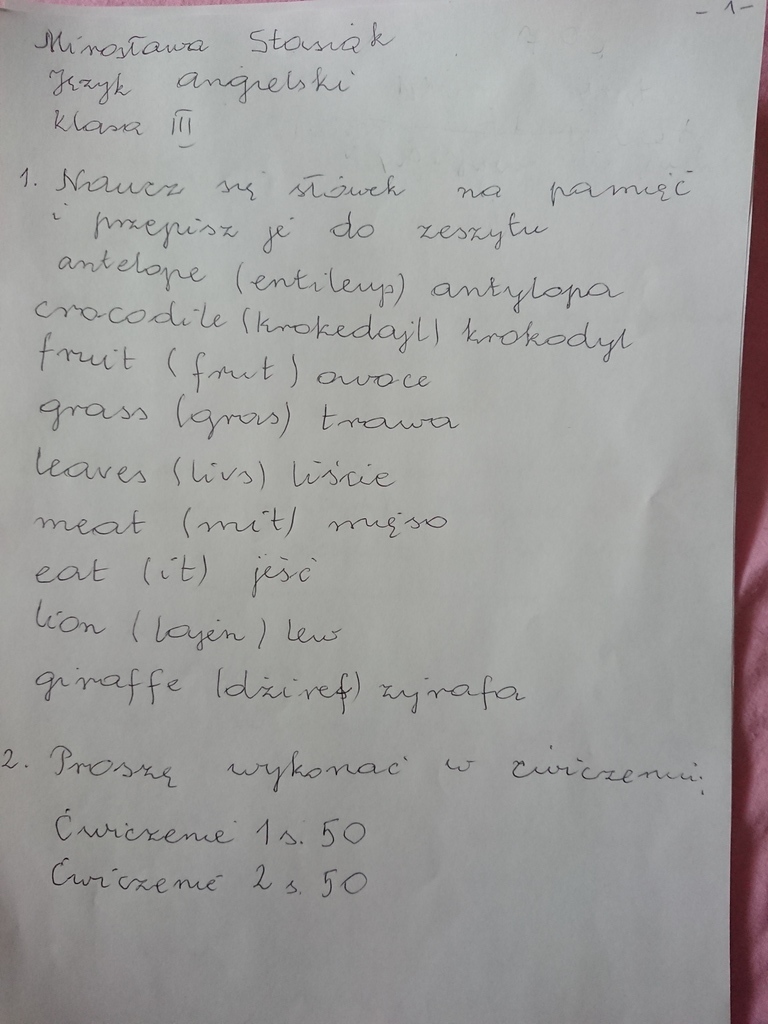 - 1 -
Mirosława Stasiak
Język angielski
klasa III
1. Naucz się słówek na pamięć
i przepisz je do zeszytu
antelope (entileup) antylopa
crocodile (krokedajl) krokodyl
fruit (frut) owoce
grass (gras) trawa
leaves (livs) liście
meat (mit) mięso
eat (it) jeść
lion (lajen) lew
giraffe (dżiref) żyrafa
2. Proszę wykonać w ćwiczeniu:
Ćwiczenie 1 s. 50
Ćwiczenie 2 s. 50